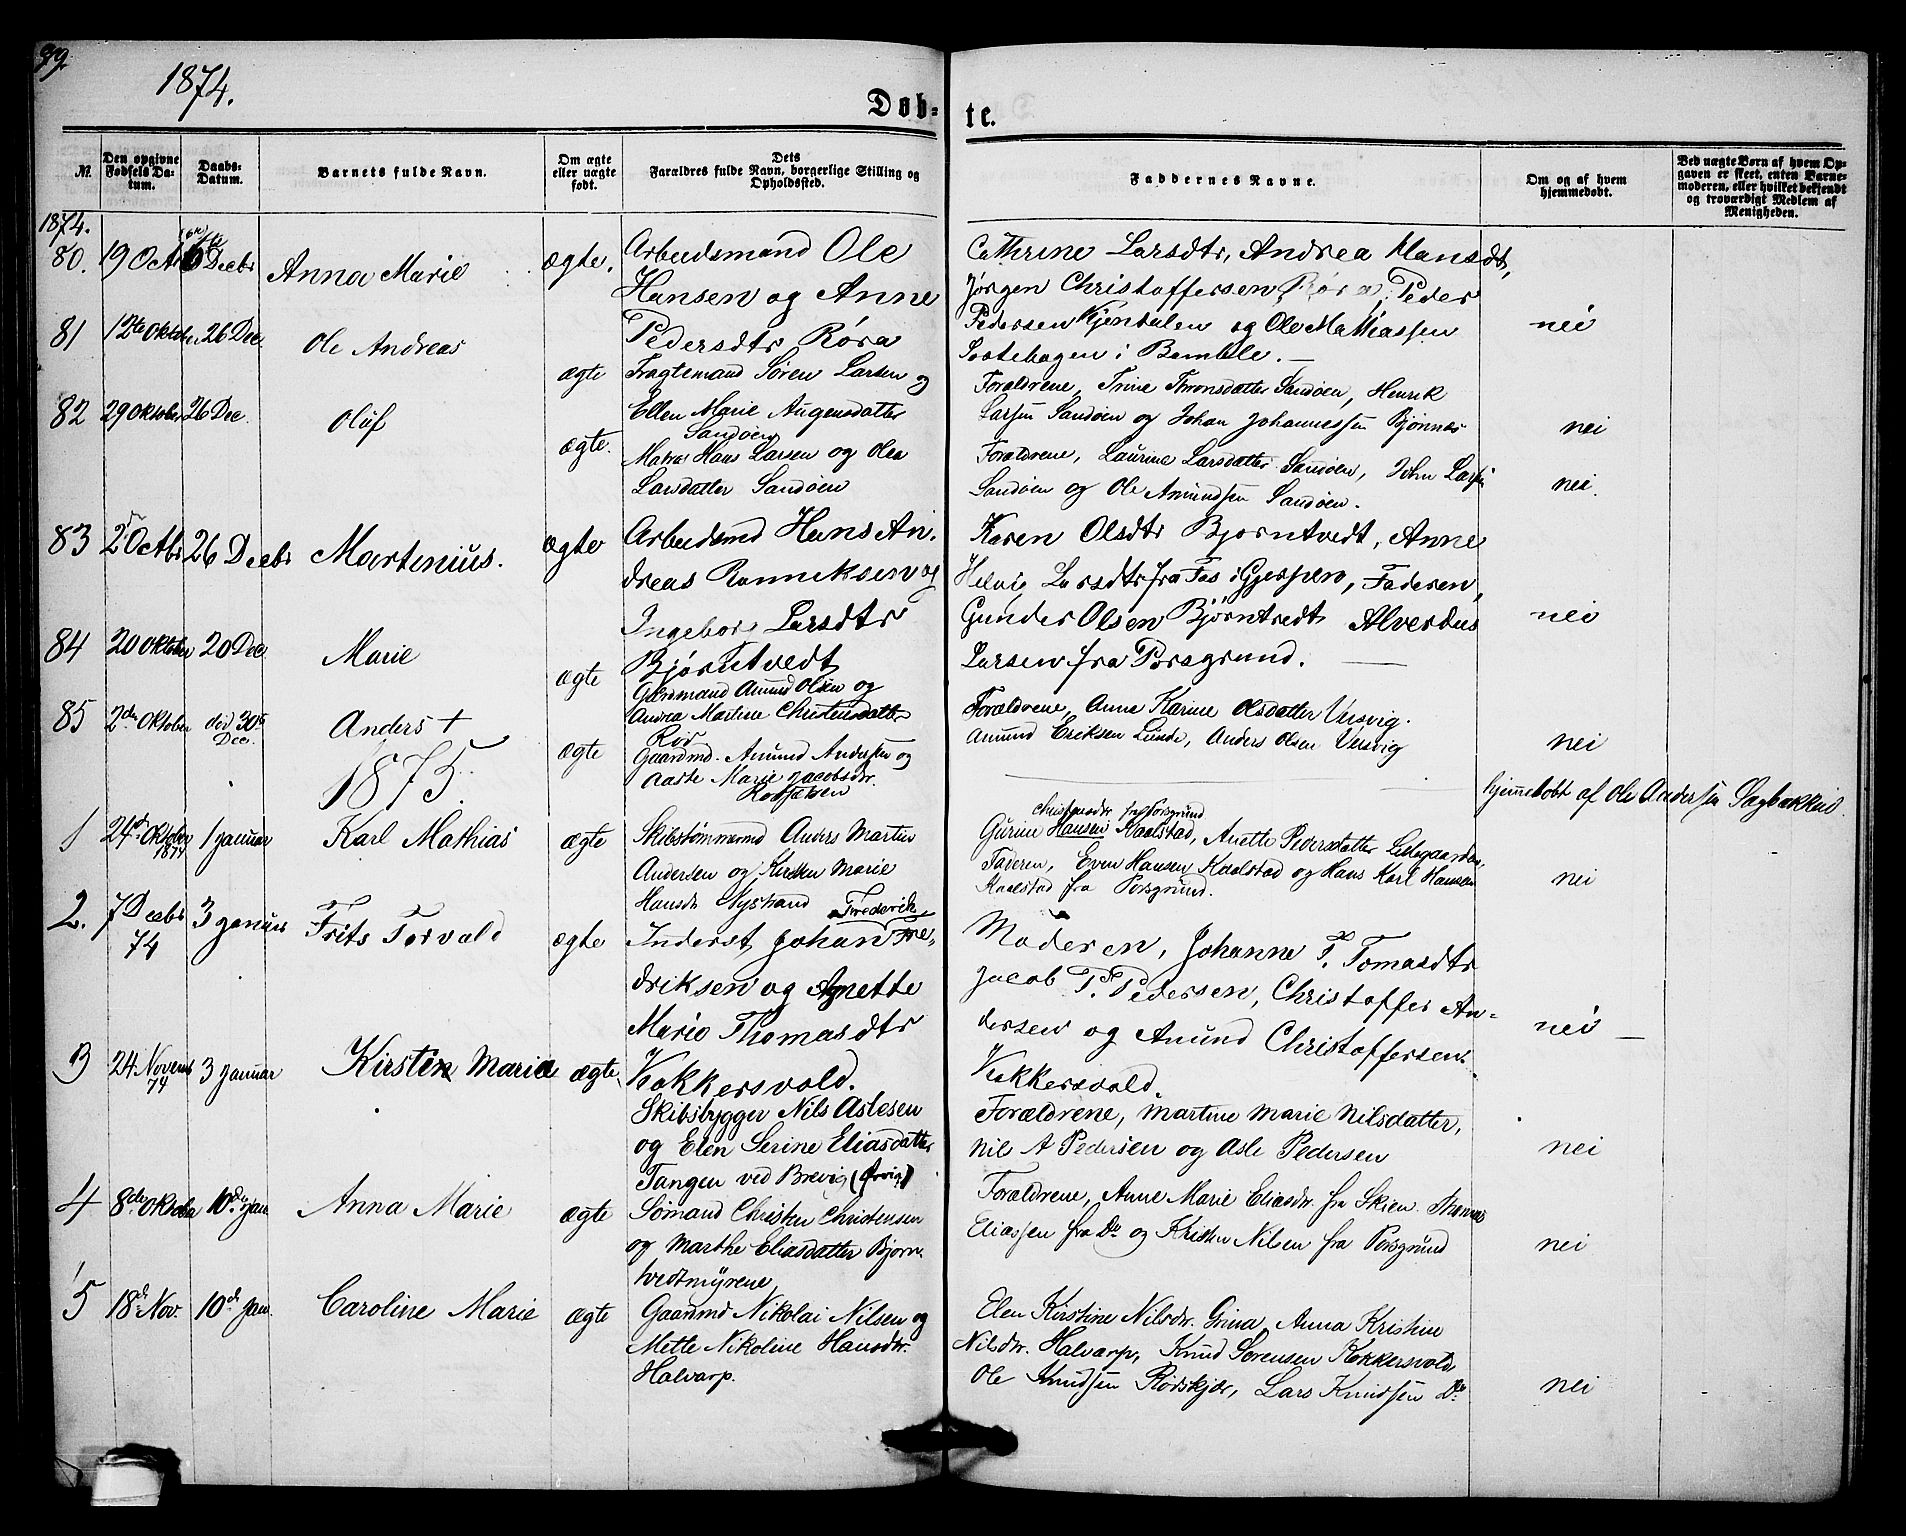 1874.
Døb-
te.
№.
Den opgivne Fødsels Datum.
Daabs-Datum.
Barnets fulde Navn.
Om ægte eller uægte født.
Dets Forældres fulde Navn, borgerlige Stilling og Opholdssted.
Faddernes Navne.
Om og af hvem hjemmedøbt.
Ved uægte Børn af hvem Opgaven er skeet, enten Barnemoderen, eller hvilket bekjendt og troværdigt Medlem af Menigheden.
1874.
80. 19 Oct 6 Decbr Anna Marie ægte.
Arbeidsmand Ole
Hansen og Anne
Pedersdtr Røra
Cathrine Larsdtr, Andrea Hansdt,
Jørgen Christoffersen Røra, Peder
Pedersen Kjendalen og Ole Mathiassen
i Bamble. —
nei
81 12te Oktober 26 Dec. Ole Andreas ægte
Fragtemand Søren Larsen og
Ellen Marie Augensdatter
Sandøen
Forældrene, Trine Thronsdatter Sandøen, Henrik
Larsen Sandøen og Johan Johannessen Bjønnes
nei
82 29 Oktober 26 Dec. Oluf ægte.
Matros Hans Larsen og Olea
Larsdatter Sandøen
Forældrene, Laurine Larsdatter Sandøen, John Larsen
Sandøen og Ole Amundsen Sandøen.
nei.
83 2 Octbr 26 Decbr Martenius. ægte
Arbeidsmd Hans An-
dreas og
Ingebor Larsdtr
Bjørntvedt
Karen Olsdtr Bjorntvedt, Anne
Helvig Larsdtr fra Fos i Gjerpen, Faderen,
Gunder Olsen Bjørntvedt Alverdus
Larsen fra Porsgrund. —
nei
84 20 Oktober 20 Dec Marie ægte
Gaardmand Amund Olsen og
Andrea Martine Christensdatter
Rør
Forældrene, Anne Karine Olsdatter Versvig.
Amund Eriksen Lunde, Anders Olsen Versvig
nei
85 2den Oktober død 30te Dec. Anders + ægte
Gaardmd. Amund Andersen og
Aaste Marie Jacobsdtr.
hjemmedøbt af Ole Andersen Sagbakken
1875.
1 24de Oktober 1874 1 Januar Karl Mathias ægte
Skibstømmermd Anders Martin
Andersen og Kirsten Marie
Hansdr Nystrand
Christensdr fra Porsgrund
Gurine Hansen Kaalstad, Anette Pedersdatter Lillegaarden,
Faderen, Even Hansen Kaalstad og Hans Karl Hansen
Kaalstad fra Porsgrund.
nei
2. 7 Decbr 74 3 Januar Frits Torvald ægte
Frederik
Inderst Johan Fre-
driksen og Anette
Marie Thomasdtr
Kokkersvold.
Moderen, Johanne F. Tomasdtr
Jacob P. Pedersen, Christoffer An-
dersen og Amund Christoffersen
Kokkersvold.
nei —
3 24 Novemb 74 3 Januar Kirsten Marie ægte
Skibsbygger Nils Aslesen
og Elen Serine Eliasdatter
Tangen ved Brevig (Ørvig)
Forældrene, Martine Marie Nilsdatter,
Nils A Pedersen og Asle Pedersen
nei
4 8de Oktober 10de Jan Anna Marie ægte
Sømand Christen Christensen
og Marthe Eliasdatter Bjørn-
tvedtmyrene
Forældrene, Anne Marie Eliasdr. fra Skien. Thomas
Eliassen fra Do og Kristen Nilsen fra Porsgrund
nei
5 18de Nov. 10de Jan. Caroline Marie ægte
Gaardmd Nikolai Nilsen og
Mette Nikoline Hansdtr.
Halvarp.
Elen Kirstine Nilsdr. Grina, Anna Kristine
Nilsdtr. Halvarp, Knud Sørensen Kokkersvold
Ole Knudsen Rødskjær, Lars Knudsen Do
nei